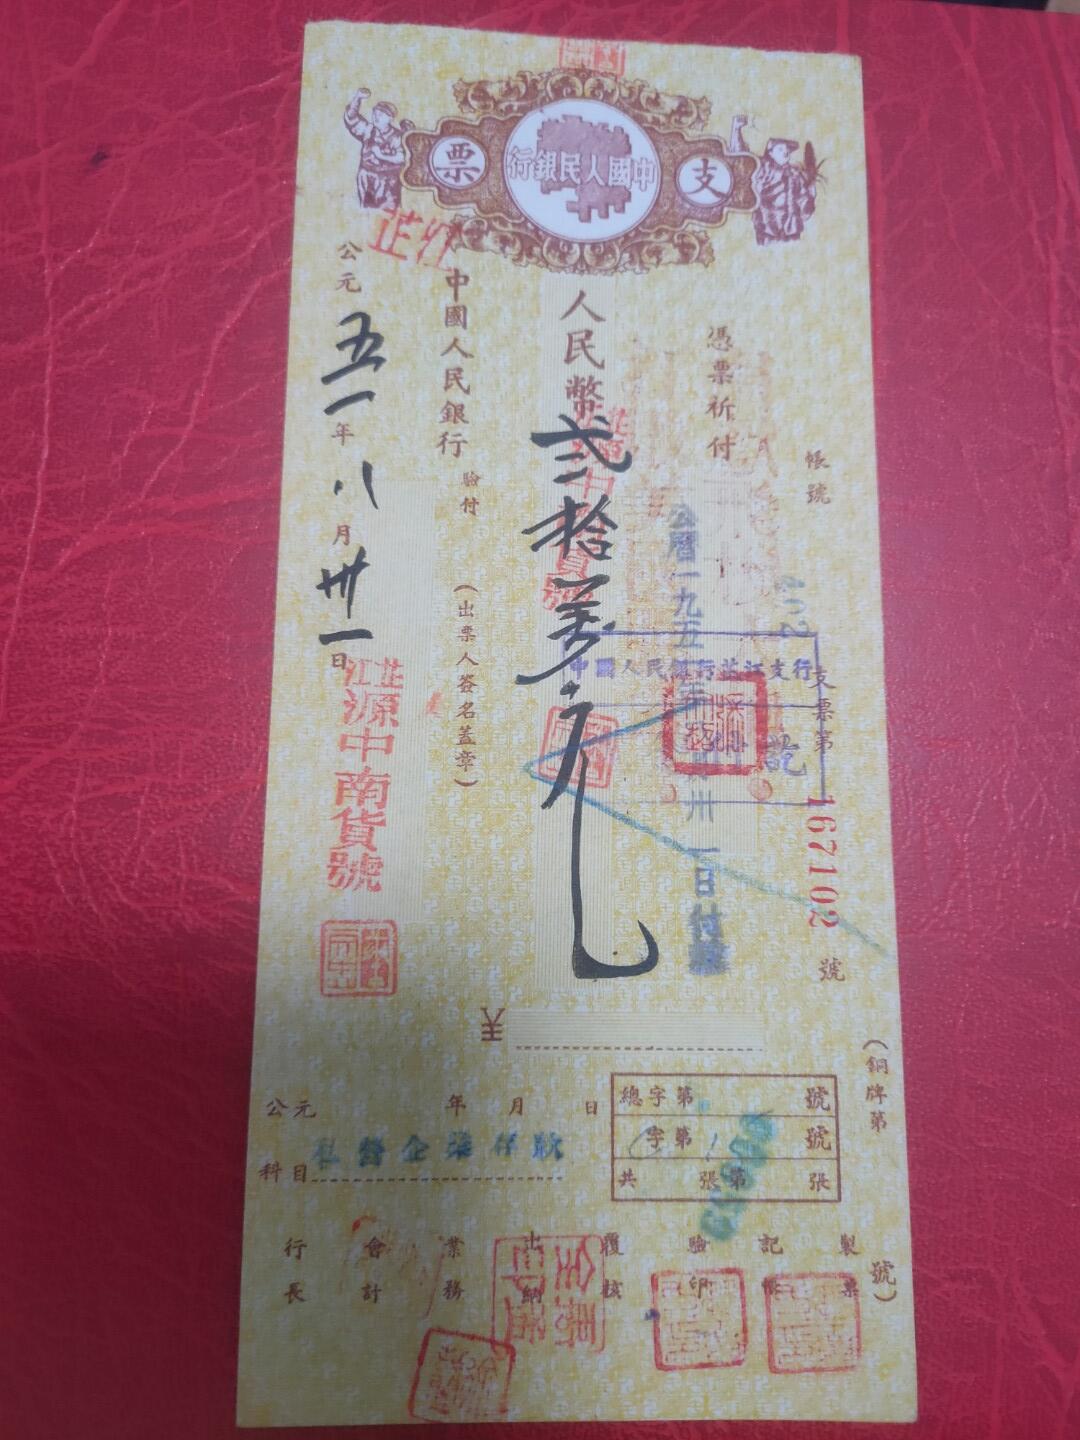 支票
中國人民銀行
帳號
支票第167102號
憑票祈付
人民幣弍拾萬元
中國人民銀行
驗付
(出票人簽名蓋章)
公元五一年八月卅一日
芷江
芷江源中南貨號
中國人民銀行芷江支行
訖
(銅牌第
號)
公元 年 月 日
科目
私營企業存款
總字第 號
字第 號
共 張第 張
行長
會計
業務
出納
覆核
驗印
記帳
製票